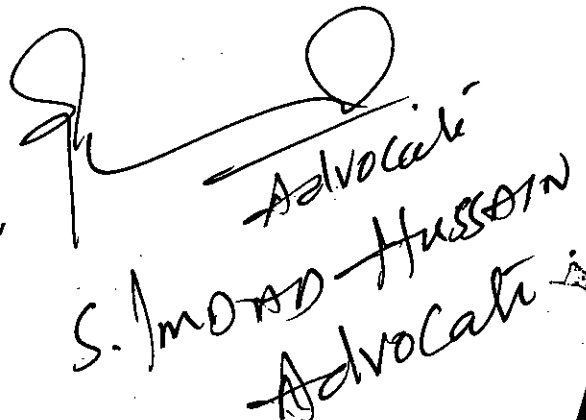 Advocate
S. IMDAD HUSSAIN
Advocate